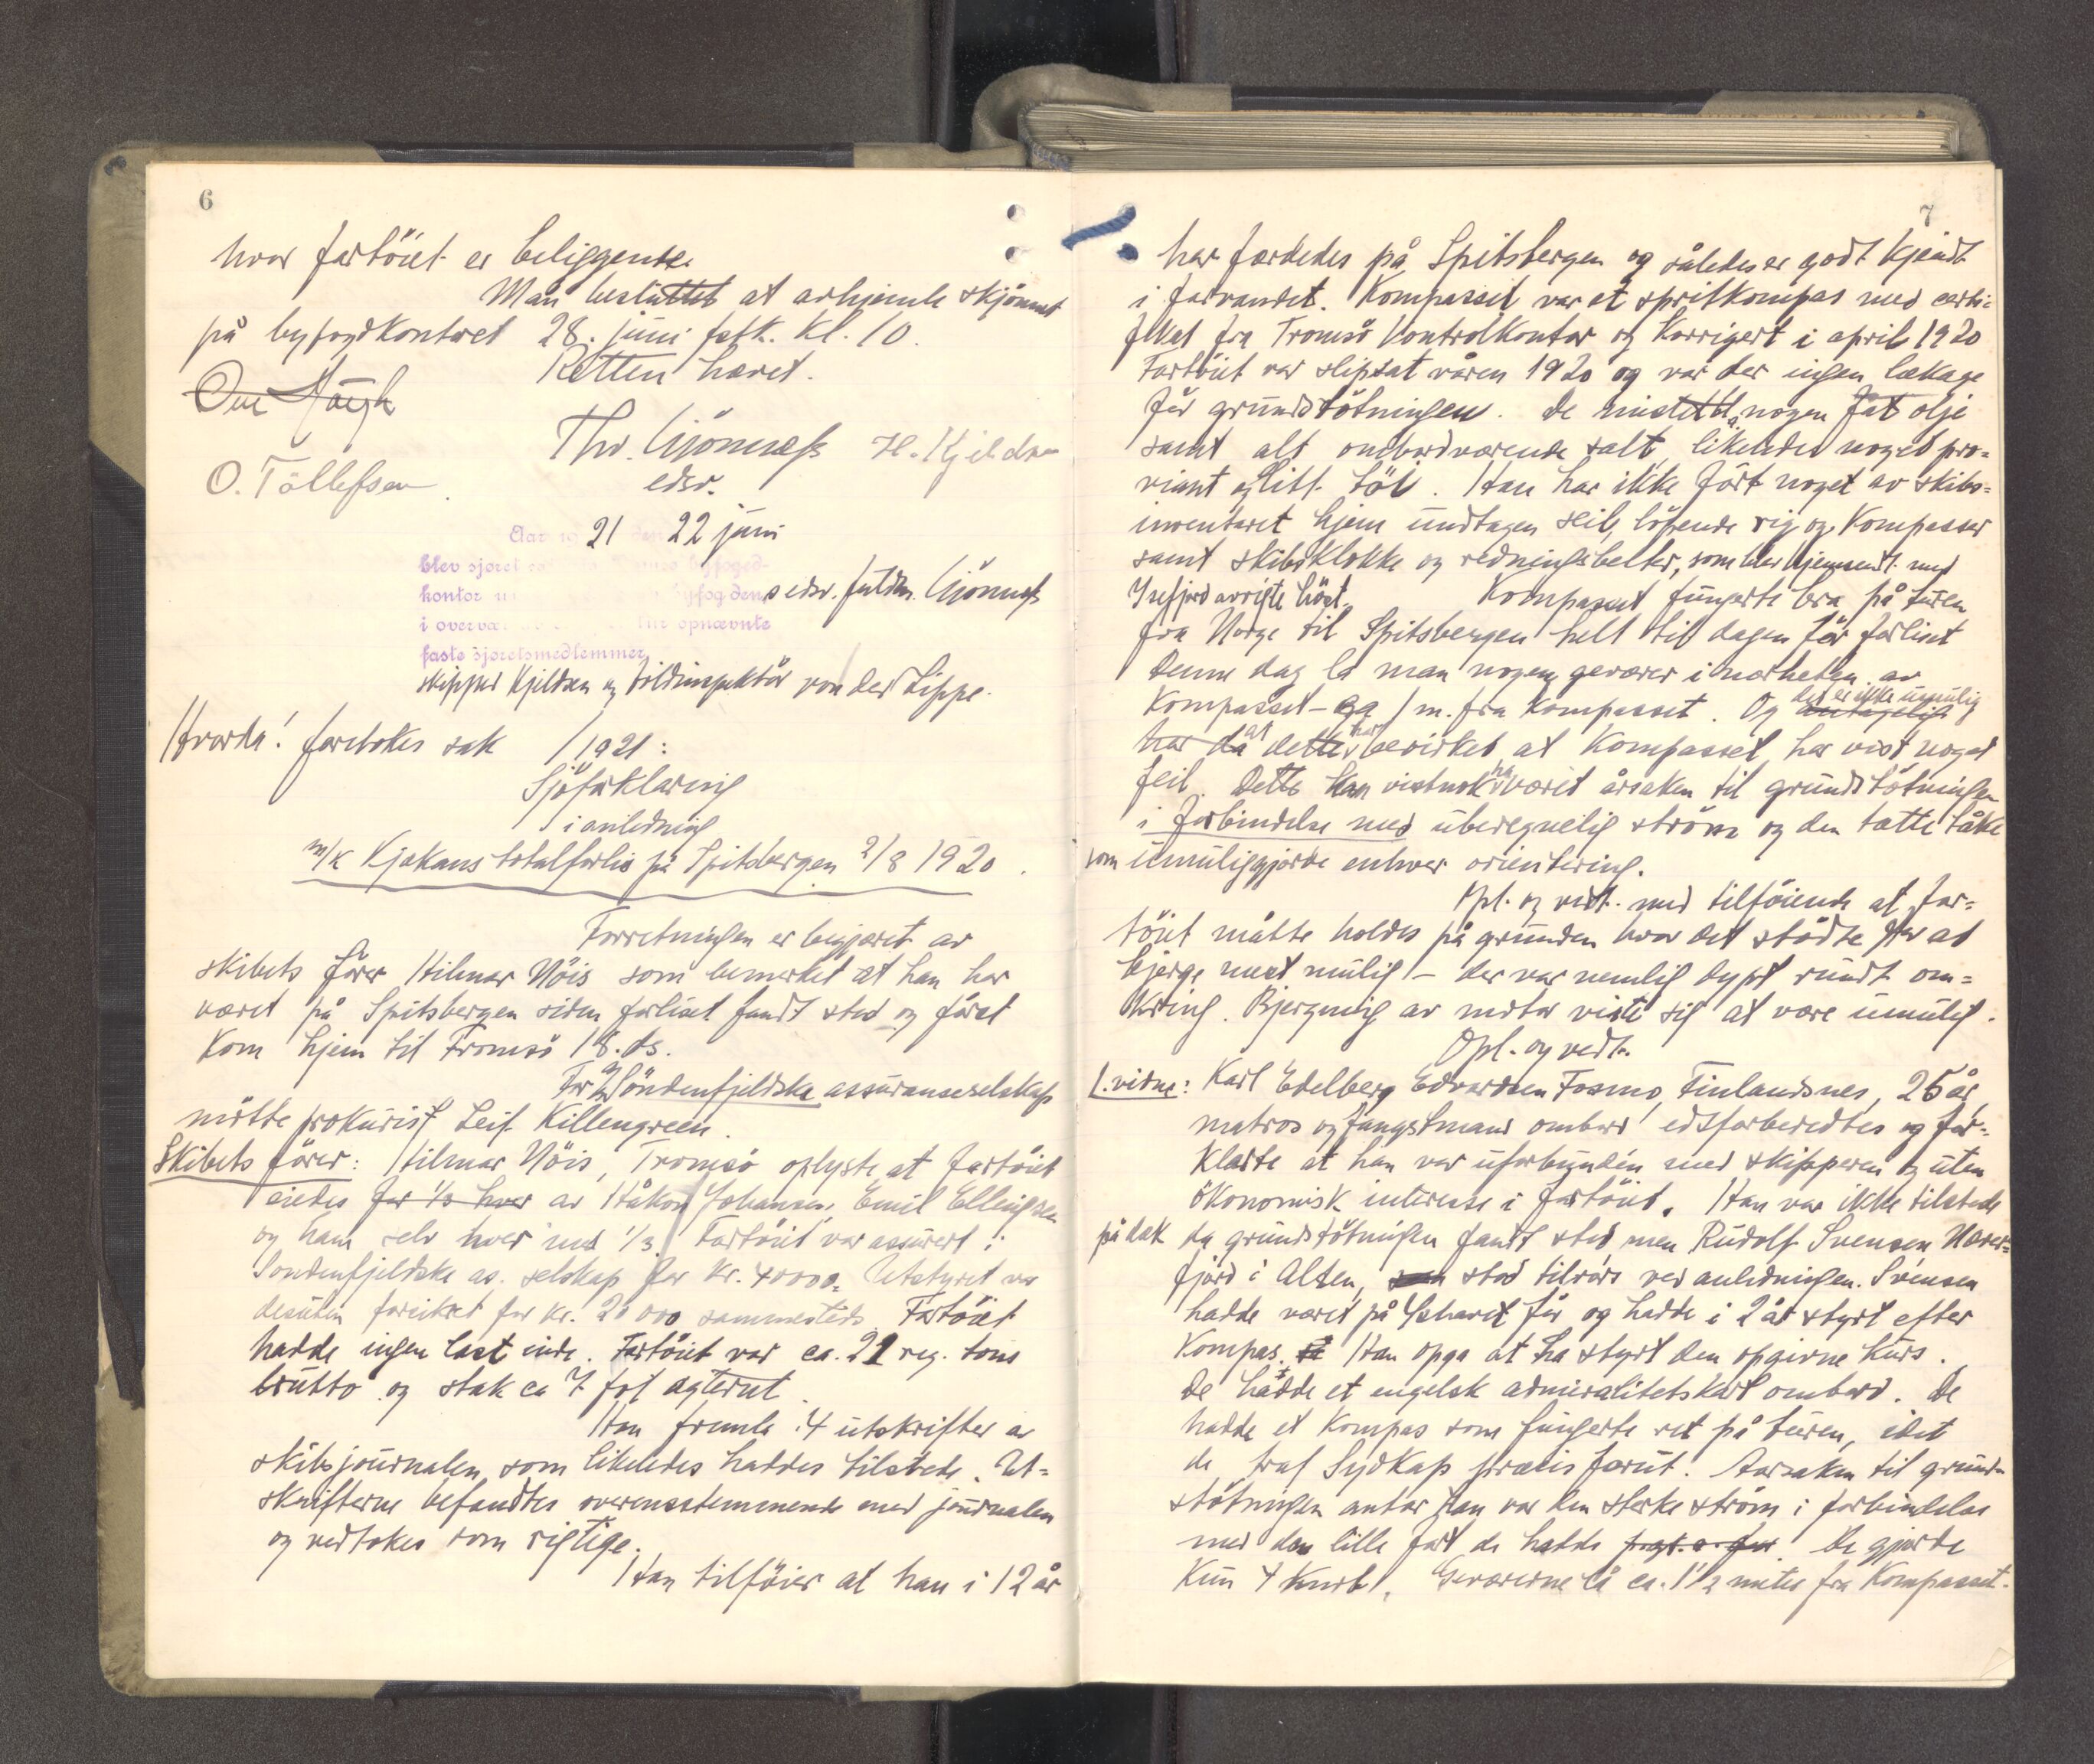 6
hvor fartöiet er beliggende.
Man besluttet at avhjemle skjönnet
på byfogdkontoret 28. juni fstk. kl. 10.
Retten hævet.
O. Tollefsen
Thv. Gjönnæss H. Kjeldsen
edsv.
Aar 19 21 den 22 juni
blev sjøret byfoged-
kontor byfogden, s edsv. fuldm. Gjönnæss
i overvær opnævnte
faste sjøretsmedlemmer,
skipper Kjeldsen og toldinspektör von der Lippe.
Hvorda! foretokes sak 1/1921:
Sjöforklaring
i anledning
m/k Kjækans totalforlis på Spitsbergen 2/8 1920.
Forretningen er begjæret av
skibets förer Hilmar Nöis som bemerket at han har
været på Spitsbergen siden forliset fandt sted og först
kom hjem til Tromsö 18. ds.
For Söndenfjeldske assuranseselskap
mötte prokurist Leif Killengreen.
Skibets förer: Hilmar Nöis, Tromsö oplyste at fartöiet
eiedes for 1/3 hver av Håkon Johansen, Emil Ellingsen
og ham selv hver med 1/3. Fartöiet var assurert i
Söndenfjeldske as. selskap for kr. 40000. Utstyret var
desuten forsikret for kr. 20 000 sammesteds. Fartöiet
hadde ingen last inde. Fartöiet var ca. 21 reg. tons
brutto og stak ca 7 fot agterut.
Han fremla 4 utskrifter av
skibsjournalen, som likeledes haddes tilstede. Ut=
skrifterne befandtes overensstemmende med journalen
og vedtokes som rigtige.
Han tilföier at han i 12 år
7
har færdedes på Spitsbergen og således er godt kjendt
i farvandet. Kompasset var et spritkompas med certi=
fikat fra Tromsö kontrolkontor og korrigert i april 1920
Fartöiet var slipsat våren 1920 og var der ingen lækage
för grundstötningen. De mistet nogen fat olje
samt alt ombordværende salt, likeledes noget pro=
viant og litt töi. Han har ikke fört noget av skibs=
inventaret hjem undtagen seil, löpende rig og kompasser
samt skibsklokke og redningsbelter, som blev hjemsendt med
Isefjord avvigte höst. Kompasset fungerte bra på turen
fra Norge til Spitsbergen helt til dagen för forliset
Denne dag la man nogen geværer i nærheten av
kompasset - ca 1 m. fra kompasset. Og det er ikke umulig
at dette har bevirket at kompasset har vist noget
feil. Dette kan vistnok ha været årsaken til grundstötningen
i forbindelse med uberegnelig ström og den tætte tåke
som umuliggjorde enhver orientering.
Opl. og vedt. med tilföiende at far=
töiet måtte holdes på grunden hvor det stödte for at
bjerge mest mulig - der var nemlig dypt rundt om=
kring. Bjergning av motor viste sig at være umulig.
Opl. og vedt.
1. vidne: Karl Edelberg Edvardsen Fosmo, Finlandsnes, 25 år,
matros og fangstmand ombord edsforberedtes og for=
klarte at han var uforbunden med skipperen og uten
ökonomisk interesse i fartöiet. Han var ikke tilstede
på dæk da grundstötningen fandt sted, men Rudolf Svensen Næver=
fjord i Alten, stod tilrors ved anledningen. Svensen
hadde været på Ishavet för og hadde i 2 år styrt efter
kompas. Han opga at ha styrt den opgivne kurs.
De hadde et engelsk admiralitetskart ombord. De
hadde et kompas som fungerte ret på turen, idet
de traf Sydkap præcis forut. Aarsaken til grund=
stötningen antar han var den sterke ström i forbindelse
med den lille fart de hadde. De gjorde
kun 4 knob. Geværerne lå ca. 1 1/2 meter fra kompasset.